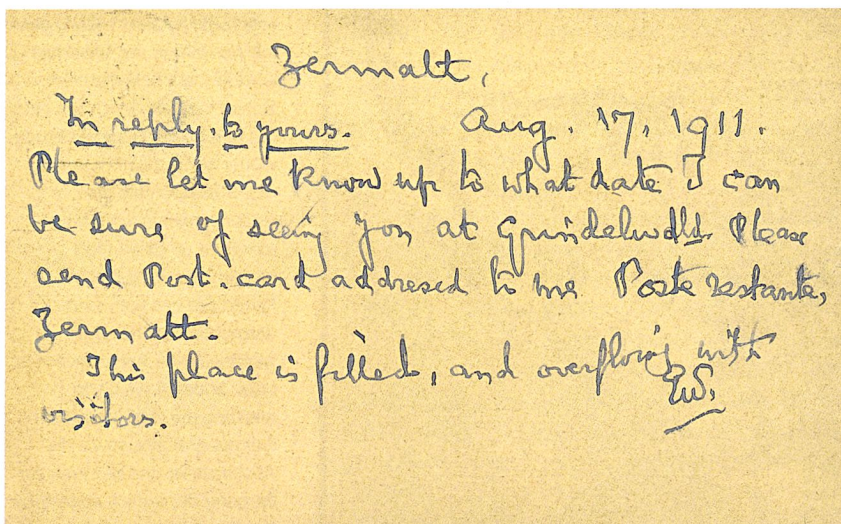 Zermatt,
In reply to yours. Aug. 17, 1911.
Please let me know up to what date I can
be sure of seeing you at Grindelwald. Please
send Post-card addresed to me Poste restante,
Zermatt.
This place is filled, and overflowing with
visitors.